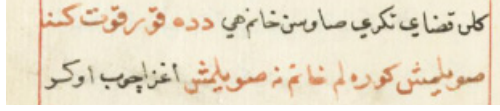 كلن قضاى تكرى صاوسن خانم هى دده قورقوت كسنا
صويلمش كوره لم خانم نه صويلمش اغز اچوب اوكر